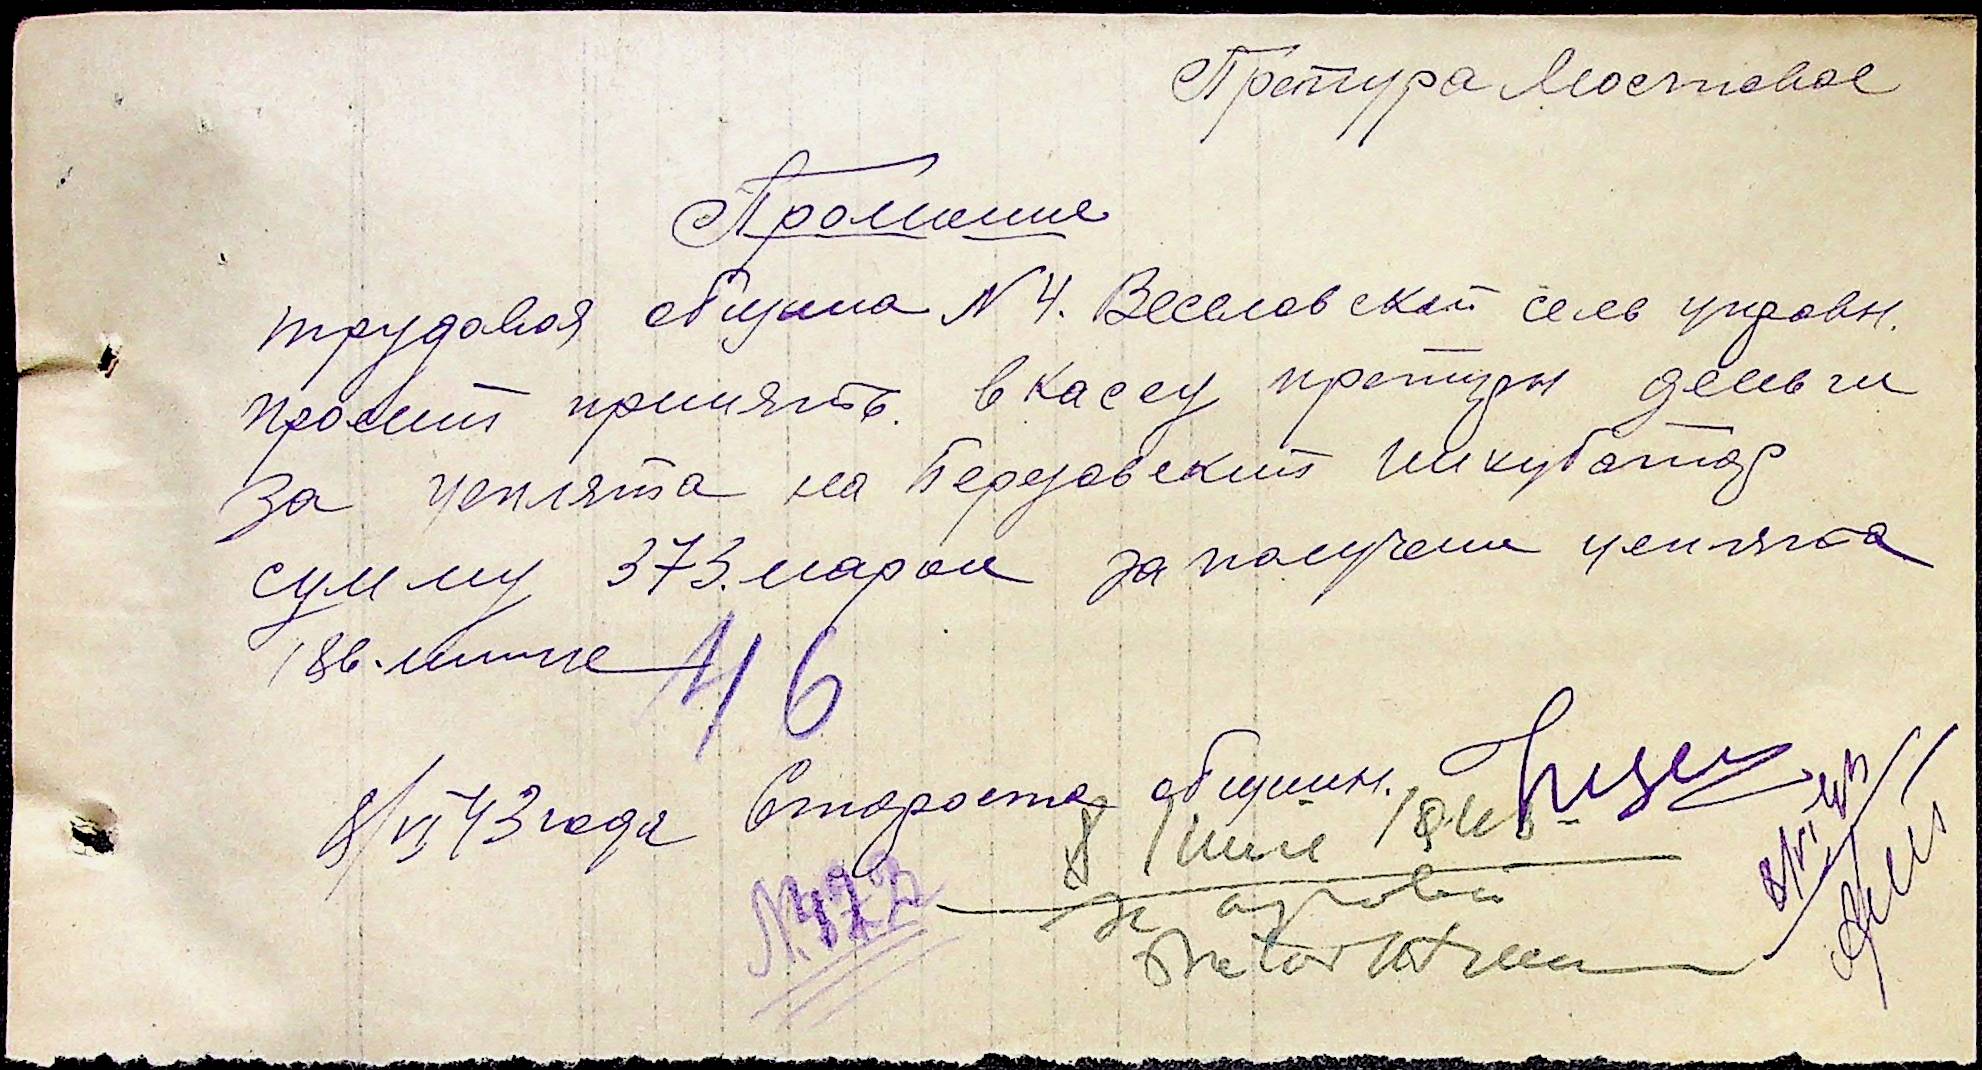 Претура Мостовое
Прошение
трудовая община N 4. Веселовской сель управн.
просит принять. в кассу претуры деньги
за цеплята на Березовский инкубатор
сумму 373. марок за получени цеплята
186. штук
N 6
8/VI 43 года Староста общин.
8 Iunie 1943
se aprobă
Pretor
N. 472
8/VI 43